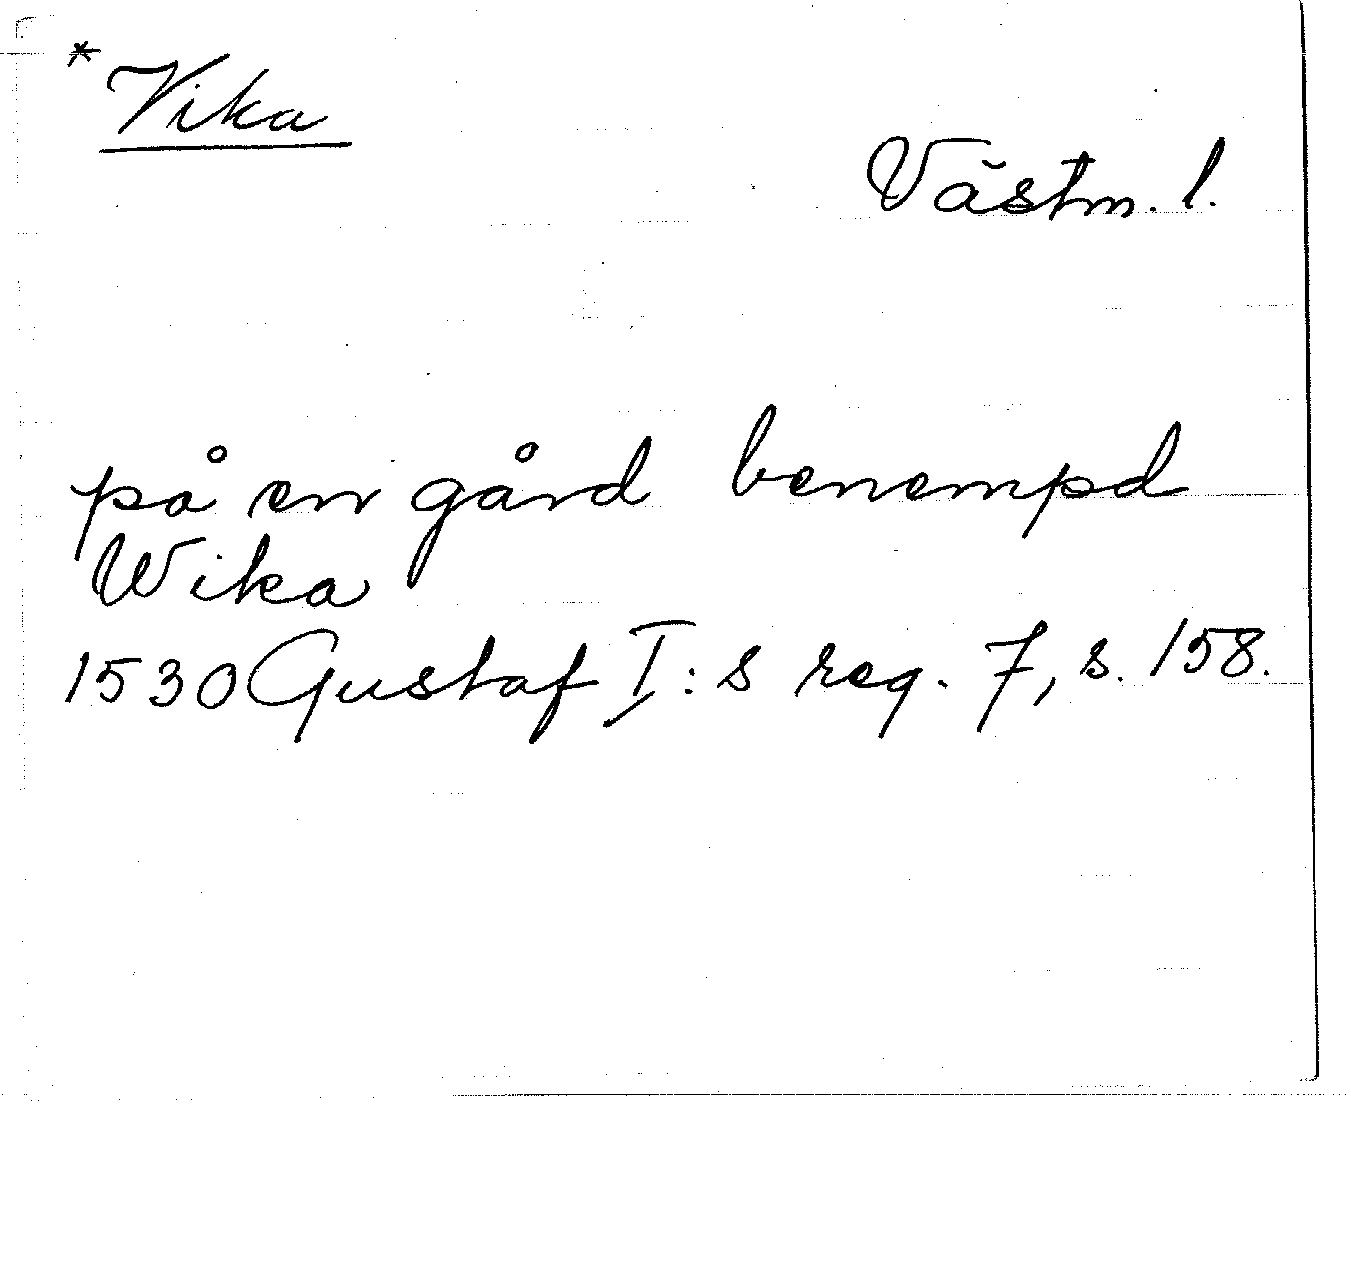 * Vika
Västm. l.
på en gård benempd
Wika
1530 Gustaf I:s reg. 7, s. 158.